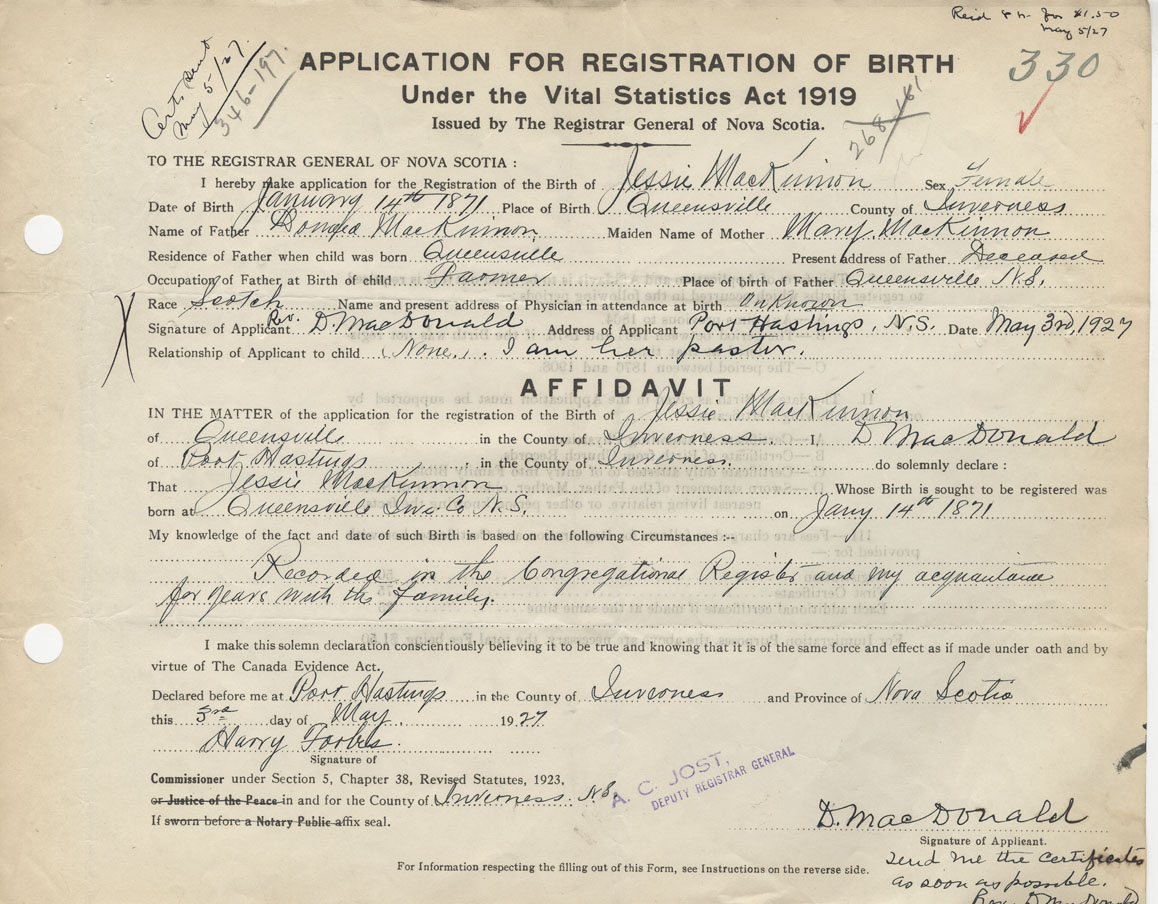 Reid $1.50
May 5/27
Cert. Sent
May 5/27.
346-197.
330
268-161
APPLICATION FOR REGISTRATION OF BIRTH
Under the Vital Statistics Act 1919
Issued by The Registrar General of Nova Scotia.
TO THE REGISTRAR GENERAL OF NOVA SCOTIA :
I hereby make application for the Registration of the Birth of Jessie MacKinnon Sex Female
Date of Birth January 14th 1871 Place of Birth Queensville County of Inverness
Name of Father Donald MacKinnon Maiden Name of Mother Mary MacKinnon
Residence of Father when child was born Queensville Present address of Father Deceased
Occupation of Father at Birth of child Farmer Place of birth of Father Queensville N.S.
Race Scotch Name and present address of Physician in attendance at birth Unknown
Signature of Applicant Rev. D. MacDonald Address of Applicant Port Hastings, N.S. Date May 3rd, 1927
Relationship of Applicant to child (None.) . I am her pastor.
AFFIDAVIT
IN THE MATTER of the application for the registration of the Birth of Jessie MacKinnon
of Queensville in the County of Inverness. I, D MacDonald
of Port Hastings in the County of Inverness. do solemnly declare :
That Jessie MacKinnon Whose Birth is sought to be registered was
born at Queensville Inv. Co. N.S. on Jany 14th 1871
My knowledge of the fact and date of such Birth is based on the following Circumstances :--
Recorded in the Congregational Register and my acquantance
for years with the family.
I make this solemn declaration conscientiously believing it to be true and knowing that it is of the same force and effect as if made under oath and by
virtue of The Canada Evidence Act.
Declared before me at Port Hastings in the County of Inverness and Province of Nova Scotia
this 3rd day of May. 1927
Harry Forbes.
Signature of
Commissioner under Section 5, Chapter 38, Revised Statutes, 1923,
or Justice of the Peace in and for the County of Inverness. N.S.
If sworn before a Notary Public affix seal.
A. C. JOST,
DEPUTY REGISTRAR GENERAL
D. MacDonald
Signature of Applicant.
Send me the certificates
as soon as possible.
Rev. D. MacDonald
For Information respecting the filling out of this Form, see Instructions on the reverse side.